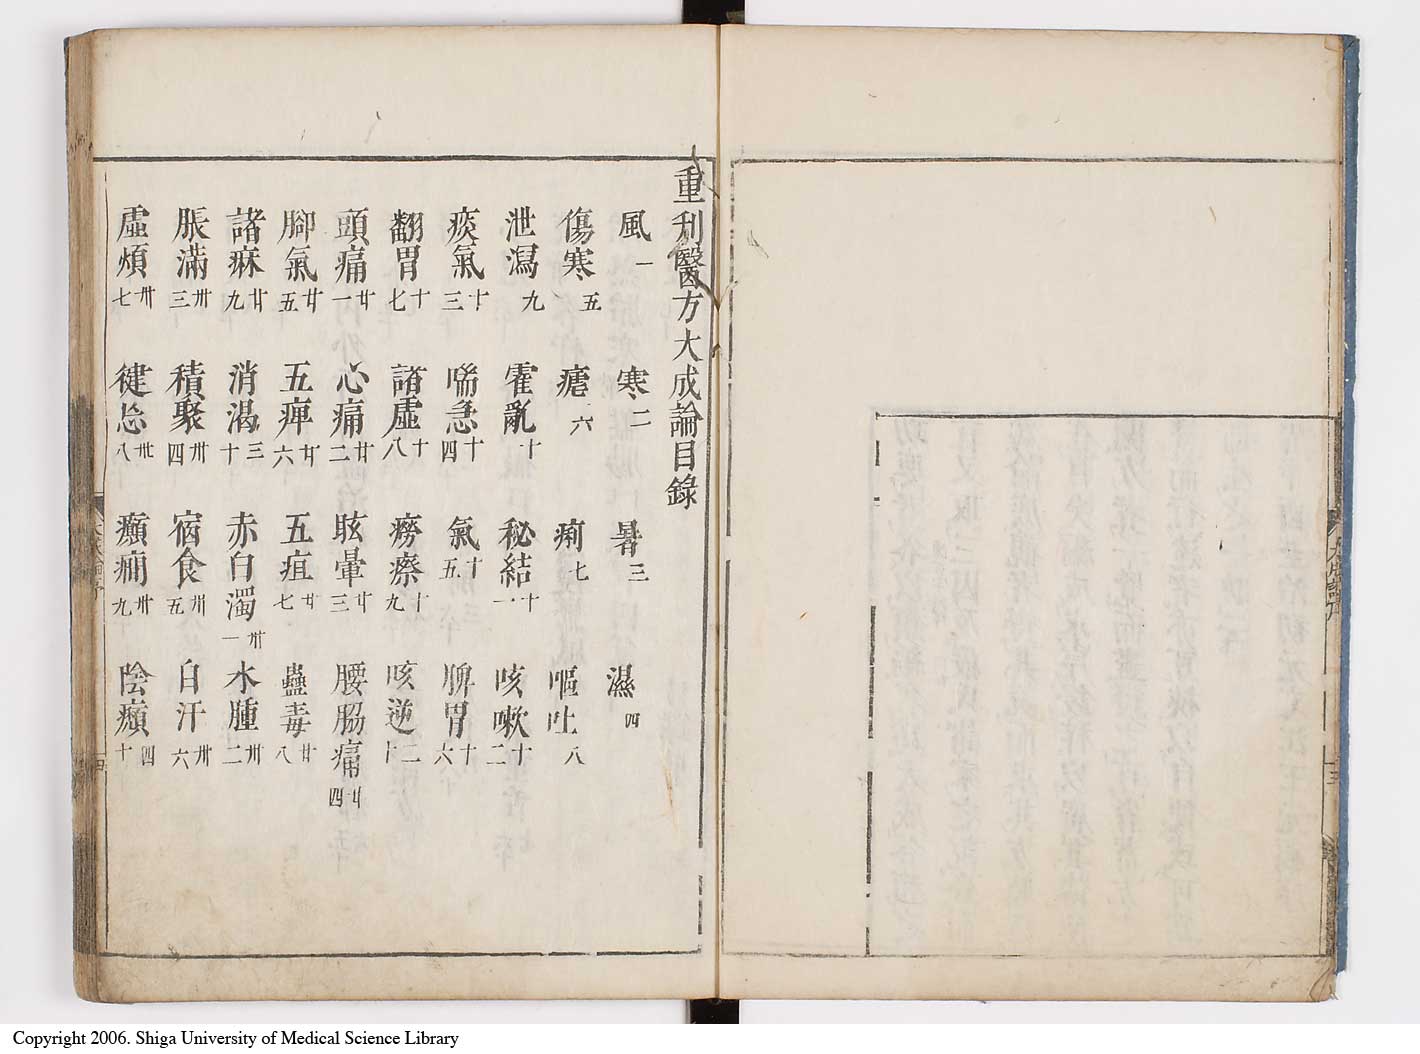 重刊醫方大成論目錄
風一 寒二 暑三 濕四
傷寒五 瘧六 痢七 嘔吐八
泄瀉九 霍亂十 秘結十一 咳嗽十二
痰氣十三 喘急十四 氣十五 脾胃十六
翻胃十七 諸虛十八 癆瘵十九 咳逆二十
頭痛廿一 心痛廿二 眩暈廿三 腰脇痛廿四
腳氣廿五 五痺廿六 五疸廿七 蠱毒廿八
諸痳廿九 消渴三十 赤白濁卅一 水腫卅二
脹滿卅三 積聚卅四 宿食卅五 自汗卅六
虛煩卅七 健忘卅八 癲癇卅九 陰㿗四十
Copyright 2006. Shiga University of Medical Science Library